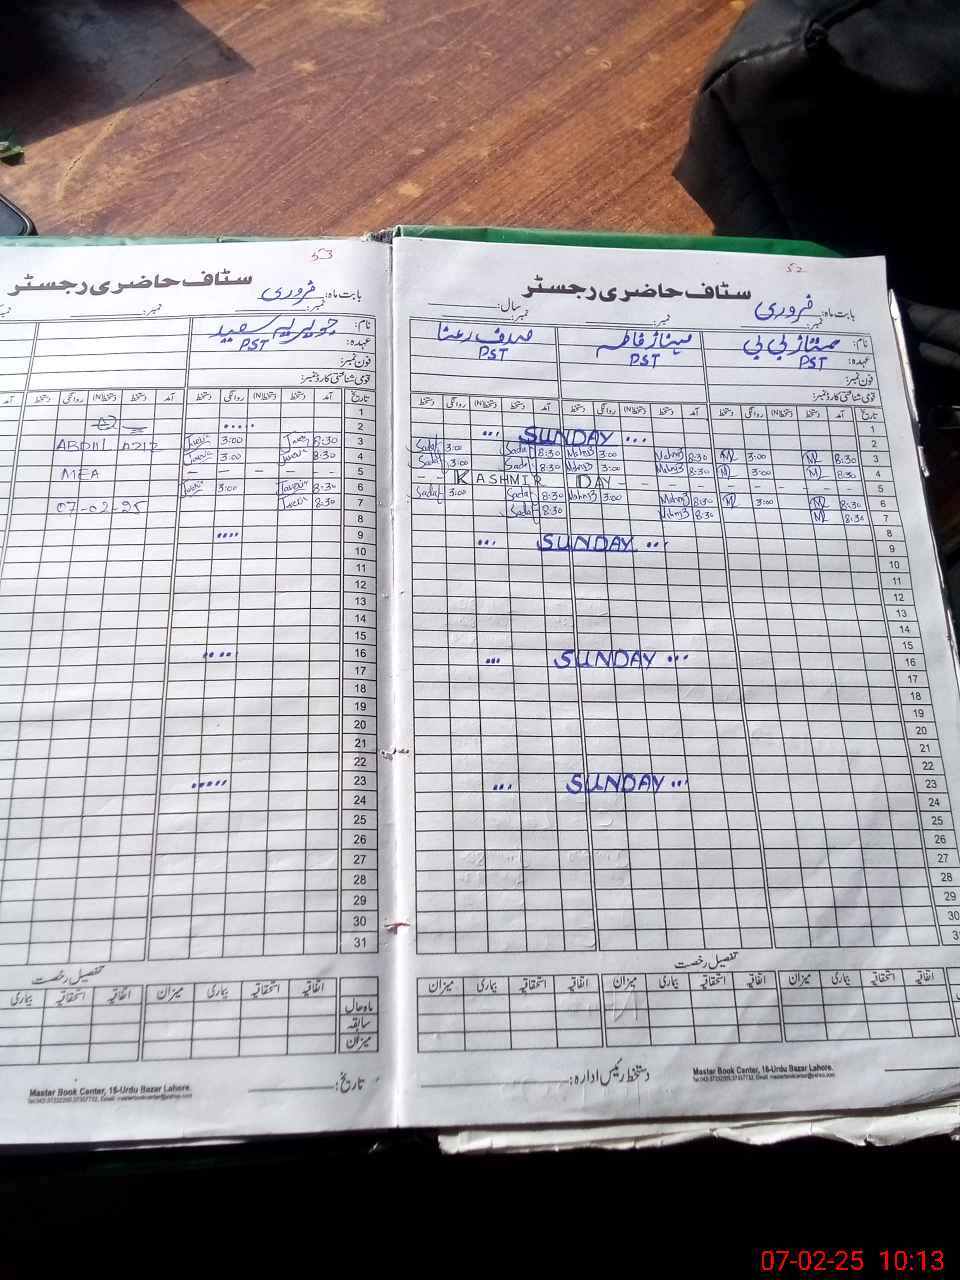 53
سٹاف حاضری رجسٹر
بابت ماہ: فروری
نمبر:
نام: جویریہ سعید
عہدہ: PST
فون نمبر:
قومی شناختی کارڈ نمبر:
تاریخ آمد دستخط (N)دستخط روانگی دستخط آمد دستخط (N)دستخط روانگی دستخط آمد
1
2 .....
3 8:30 3:00 ABDUL
4 8:30 3:00
5 – – – MEA
6 8:30 3:00
7 8:30 07-02-25
8
9 ....
10
11
12
13
14
15
16 .....
17
18
19
20
21
22
23 .....
24
25
26
27
28
29
30
31
تفصیل رخصت
اتفاقیہ استحقاقیہ بیماری میزان اتفاقیہ استحقاقیہ بیماری
ماہ حال
سابقہ
میزان
تاریخ:
Master Book Center, 16-Urdu Bazar Lahore.
52
سٹاف حاضری رجسٹر
بابت ماہ: فروری
نمبر: نمبر: سال: نمبر:
نام: ممتاز بی بی مہناز فاطمہ صدف رعنا
عہدہ: PST PST PST
فون نمبر:
قومی شناختی کارڈ نمبر:
تاریخ آمد دستخط (N)دستخط روانگی دستخط آمد دستخط (N)دستخط روانگی دستخط آمد دستخط (N)دستخط روانگی دستخط
1
2 ... SUNDAY ...
3 8:30 M 3:00 M 8:30 Mahnaz 3:00 Mahnaz 8:30 Sadaf 3:00 Sadaf
4 8:30 M 3:00 M 8:30 Mahnaz 3:00 Mahnaz 8:30 Sadaf 3:00 Sadaf
5 – – KASHMIR DAY – – – – – –
6 8:30 M 3:00 M 8:30 Mahnaz 3:00 Mahnaz 8:30 Sadaf 3:00 Sadaf
7 8:30 M 8:30 Mahnaz 8:30 Sadaf
8
9 ... SUNDAY ...
10
11
12
13
14
15
16 ... SUNDAY ...
17
18
19
20
21
22
23 ... SUNDAY ...
24
25
26
27
28
29
30
31
تفصیل رخصت
اتفاقیہ استحقاقیہ بیماری میزان اتفاقیہ استحقاقیہ بیماری میزان اتفاقیہ استحقاقیہ بیماری میزان
دستخط رئیس ادارہ:
Master Book Center, 16-Urdu Bazar Lahore.
07-02-25 10:13